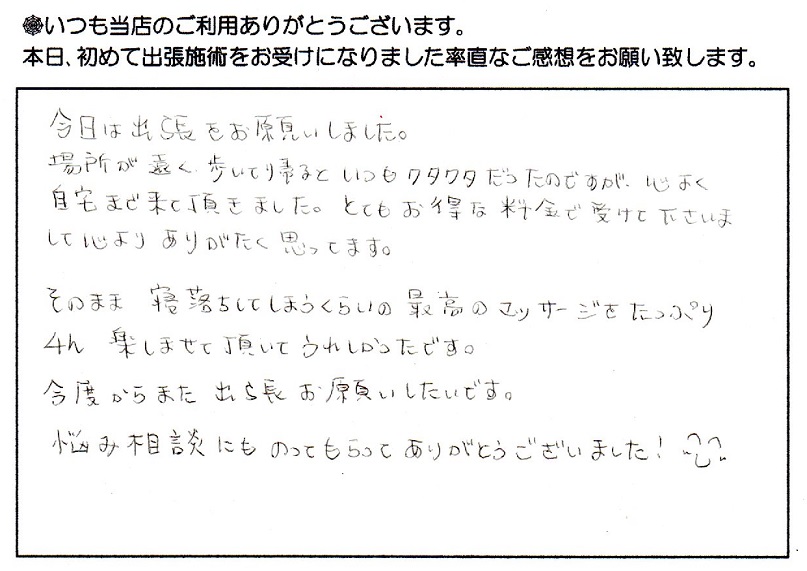 いつも当店のご利用ありがとうございます。
本日、初めて出張施術をお受けになりました率直なご感想をお願い致します。
今日は出張をお願いしました。
場所が遠く、歩いてり帰るといつもクタクタだったのですが、心よく
自宅まで来て頂きました。とてもお得な料金で受けて下さいま
して心よりありがたく思ってます。
そのまま 寝落ちしてしまうくらいの最高のマッサージをたっぷり
4h 楽しませて頂いてうれしかったです。
今度からまた出張お願いしたいです。
悩み相談にものってもらってありがとうございました!